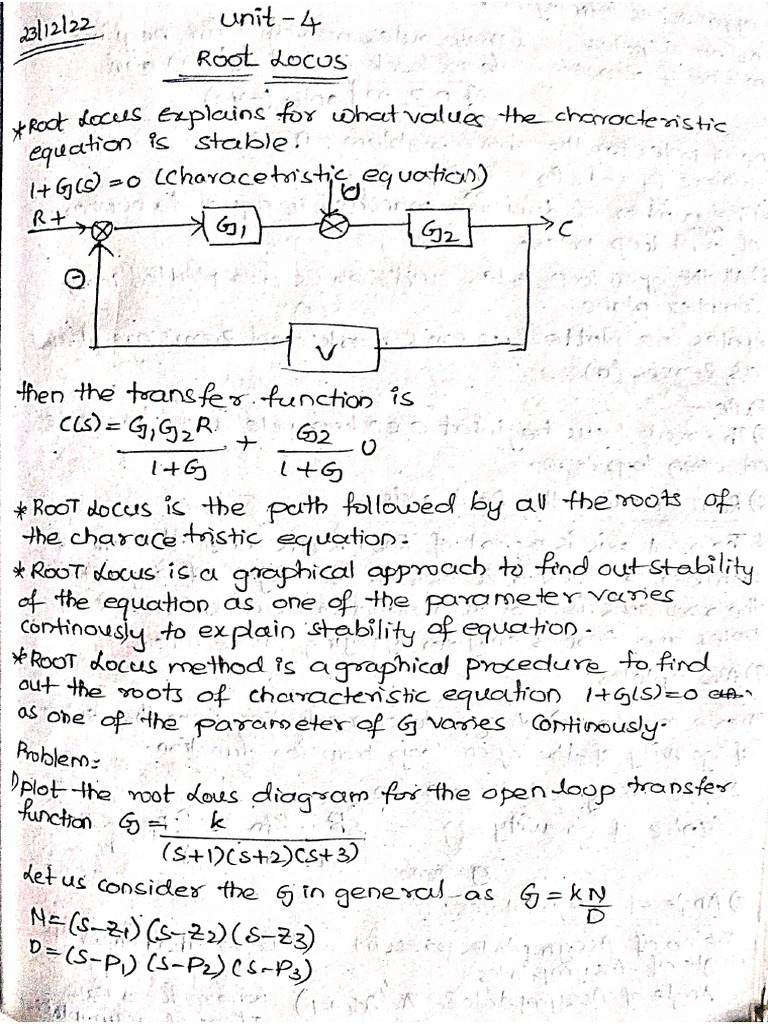 23/12/22
Unit-4
ROOT LOCUS
*Root Locus Explains for what values the characteristic
equation is stable.
1+G(s)=0 (Characetristic equation)
U
R +
G1
G2
C
⊖
V
then the transfer function is
C(s) = G1G2R/1+G + G2/1+G U
*ROOT Locus is the path followed by all the roots of
the characetristic equation.
*ROOT Locus is a graphical approach to find out stability
of the equation as one of the parameter varies
continously to explain stability of equation.
*ROOT Locus method is a graphical procedure to find
out the roots of characteristic equation 1+G(S)=0
as one of the parameter of G varies continously.
Problem:-
1) plot the root Lous diagram for the open loop transfer
function G = k/(S+1)(S+2)(S+3)
Let us consider the G in general as G = k N/D
N=(S-Z1)(S-Z2)(S-Z3)
D=(S-P1)(S-P2)(S-P3)